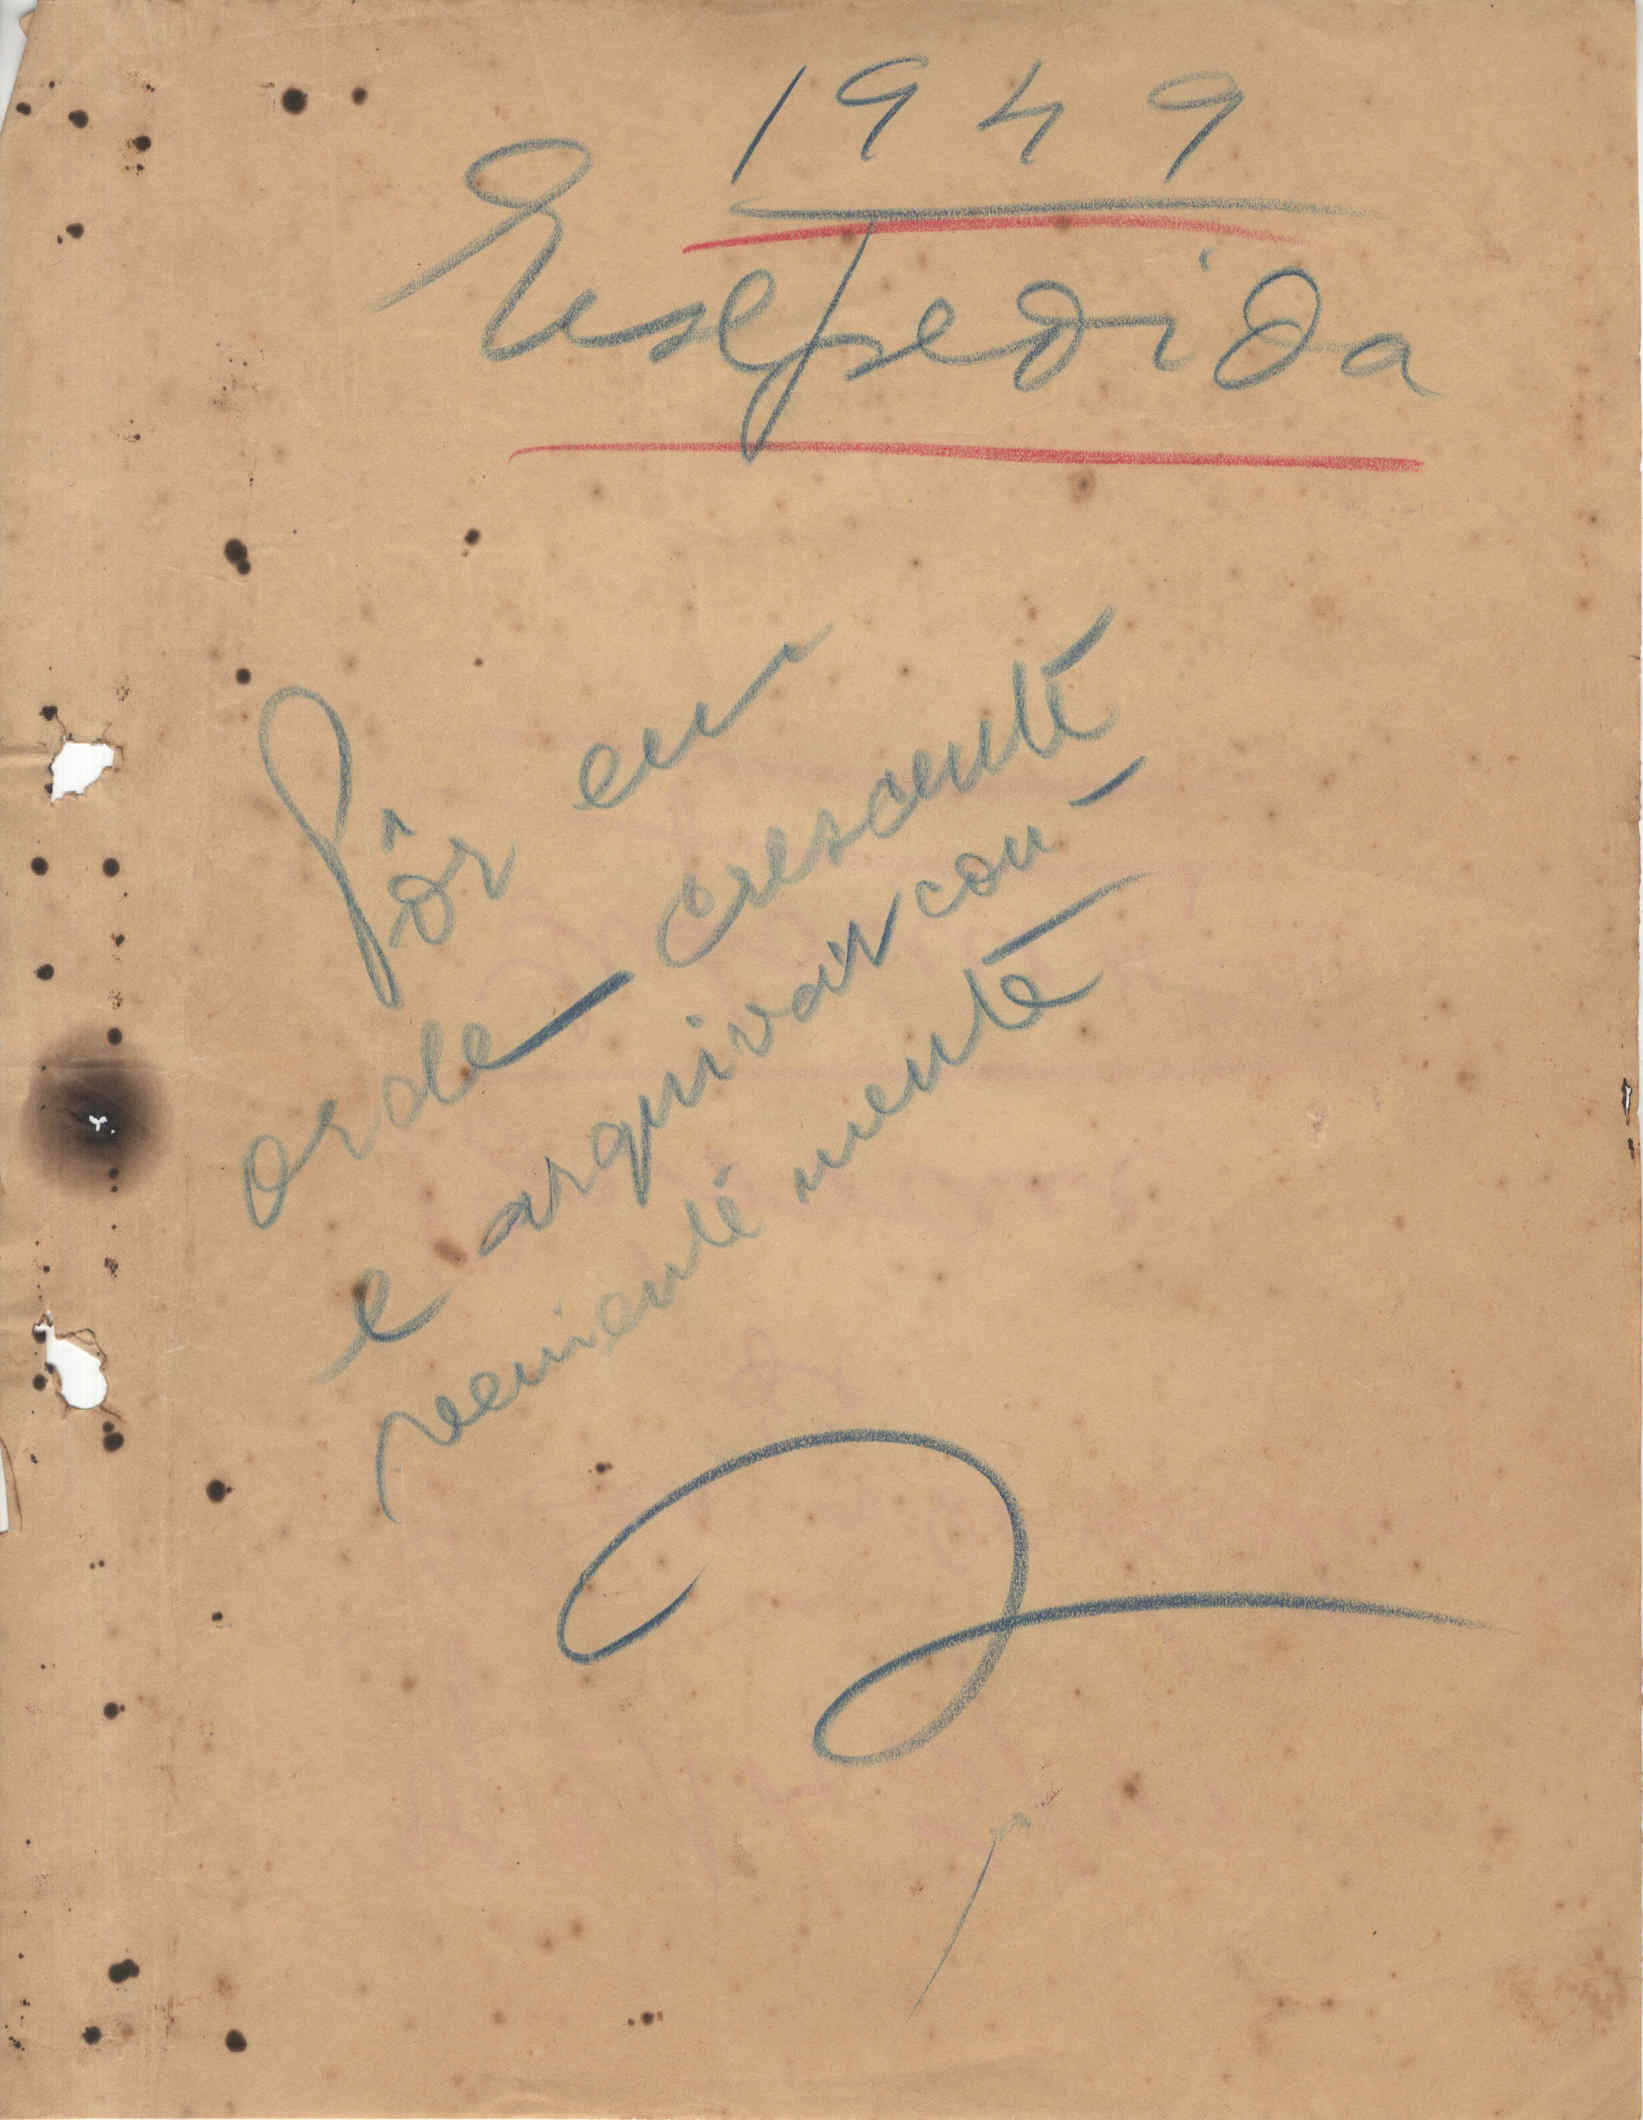 1949
Expedida
Pôr em
ordem crescente
e arquivar con-
venientemente